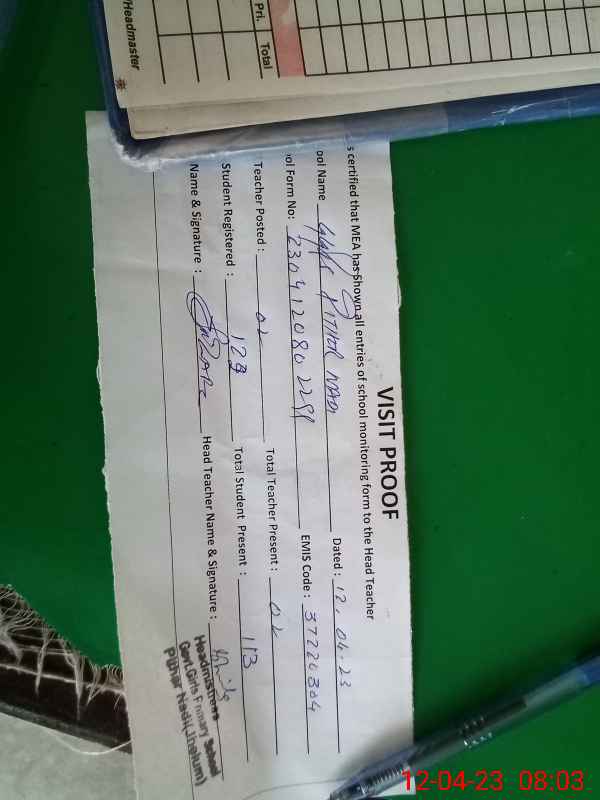 /Headmaster
Pri. Total
VISIT PROOF
s certified that MEA has shown all entries of school monitoring form to the Head Teacher
ool Name PITHOR NADI Dated : 12.04.23
ool Form No: EMIS Code : 37220304
Teacher Posted : 02 Total Teacher Present : 02
Student Registered : Total Student Present : 113
Name & Signature : Head Teacher Name & Signature :
Headmistress
Govt.Girls Primary School
Pithor Nadi (Jhelum)
12-04-23 08:03